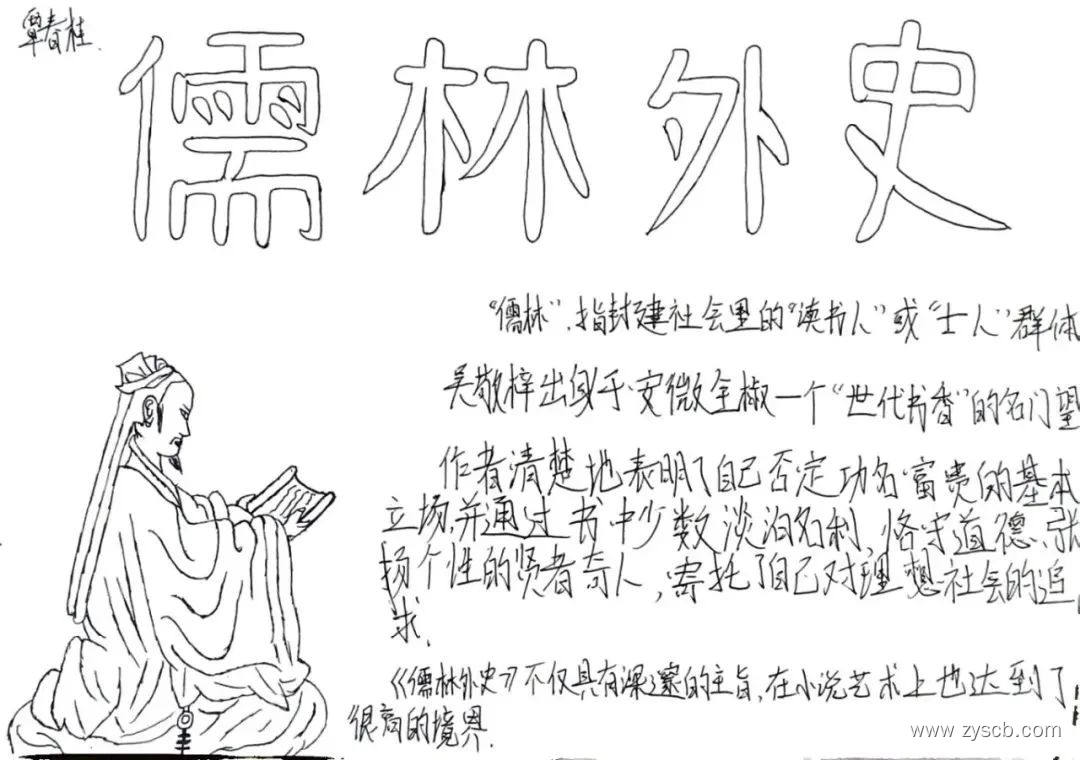 覃春桂.
儒林外史
“儒林”,指封建社会里的“读书人”或“士人”群体
吴敬梓出身于安微全椒一个“世代书香”的名门望
作者清楚地表明了自己否定功名富贵的基本
立场,并通过书中少数淡泊名利,恪守道德、张
扬个性的贤者奇人,寄托了自己对理想社会的追
求.
《儒林外史》不仅具有深邃的主旨,在小说艺术上也达到了
很高的境界.
www.zyscb.com